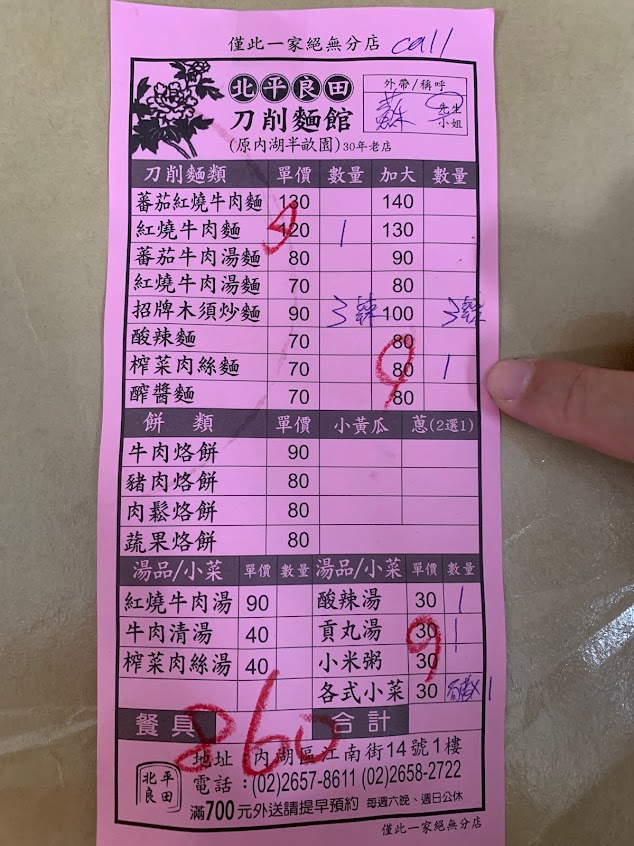 僅此一家絕無分店 call
北平良田
刀削麵館
(原內湖半畝園)30年老店
外帶/稱呼
蘇 先生
小姐
刀削麵類 單價 數量 加大 數量
蕃茄紅燒牛肉麵 130 140
紅燒牛肉麵 120 1 130
蕃茄牛肉湯麵 80 90
紅燒牛肉湯麵 70 80
招牌木須炒麵 90 3辣 100 3辣
酸辣麵 70 80
榨菜肉絲麵 70 80 1
醡醬麵 70 80
5
9
餅類 單價 小黃瓜 蔥(2選1)
牛肉烙餅 90
豬肉烙餅 80
肉鬆烙餅 80
蔬果烙餅 80
湯品/小菜 單價 數量 湯品/小菜 單價 數量
紅燒牛肉湯 90 酸辣湯 30 1
牛肉清湯 40 貢丸湯 30 1
榨菜肉絲湯 40 小米粥 30
各式小菜 30 1
9
餐具 合計
860
北平良田
地址:內湖區江南街14號1樓
電話:(02)2657-8611 (02)2658-2722
滿700元外送請提早預約 每週六晚、週日公休
僅此一家絕無分店